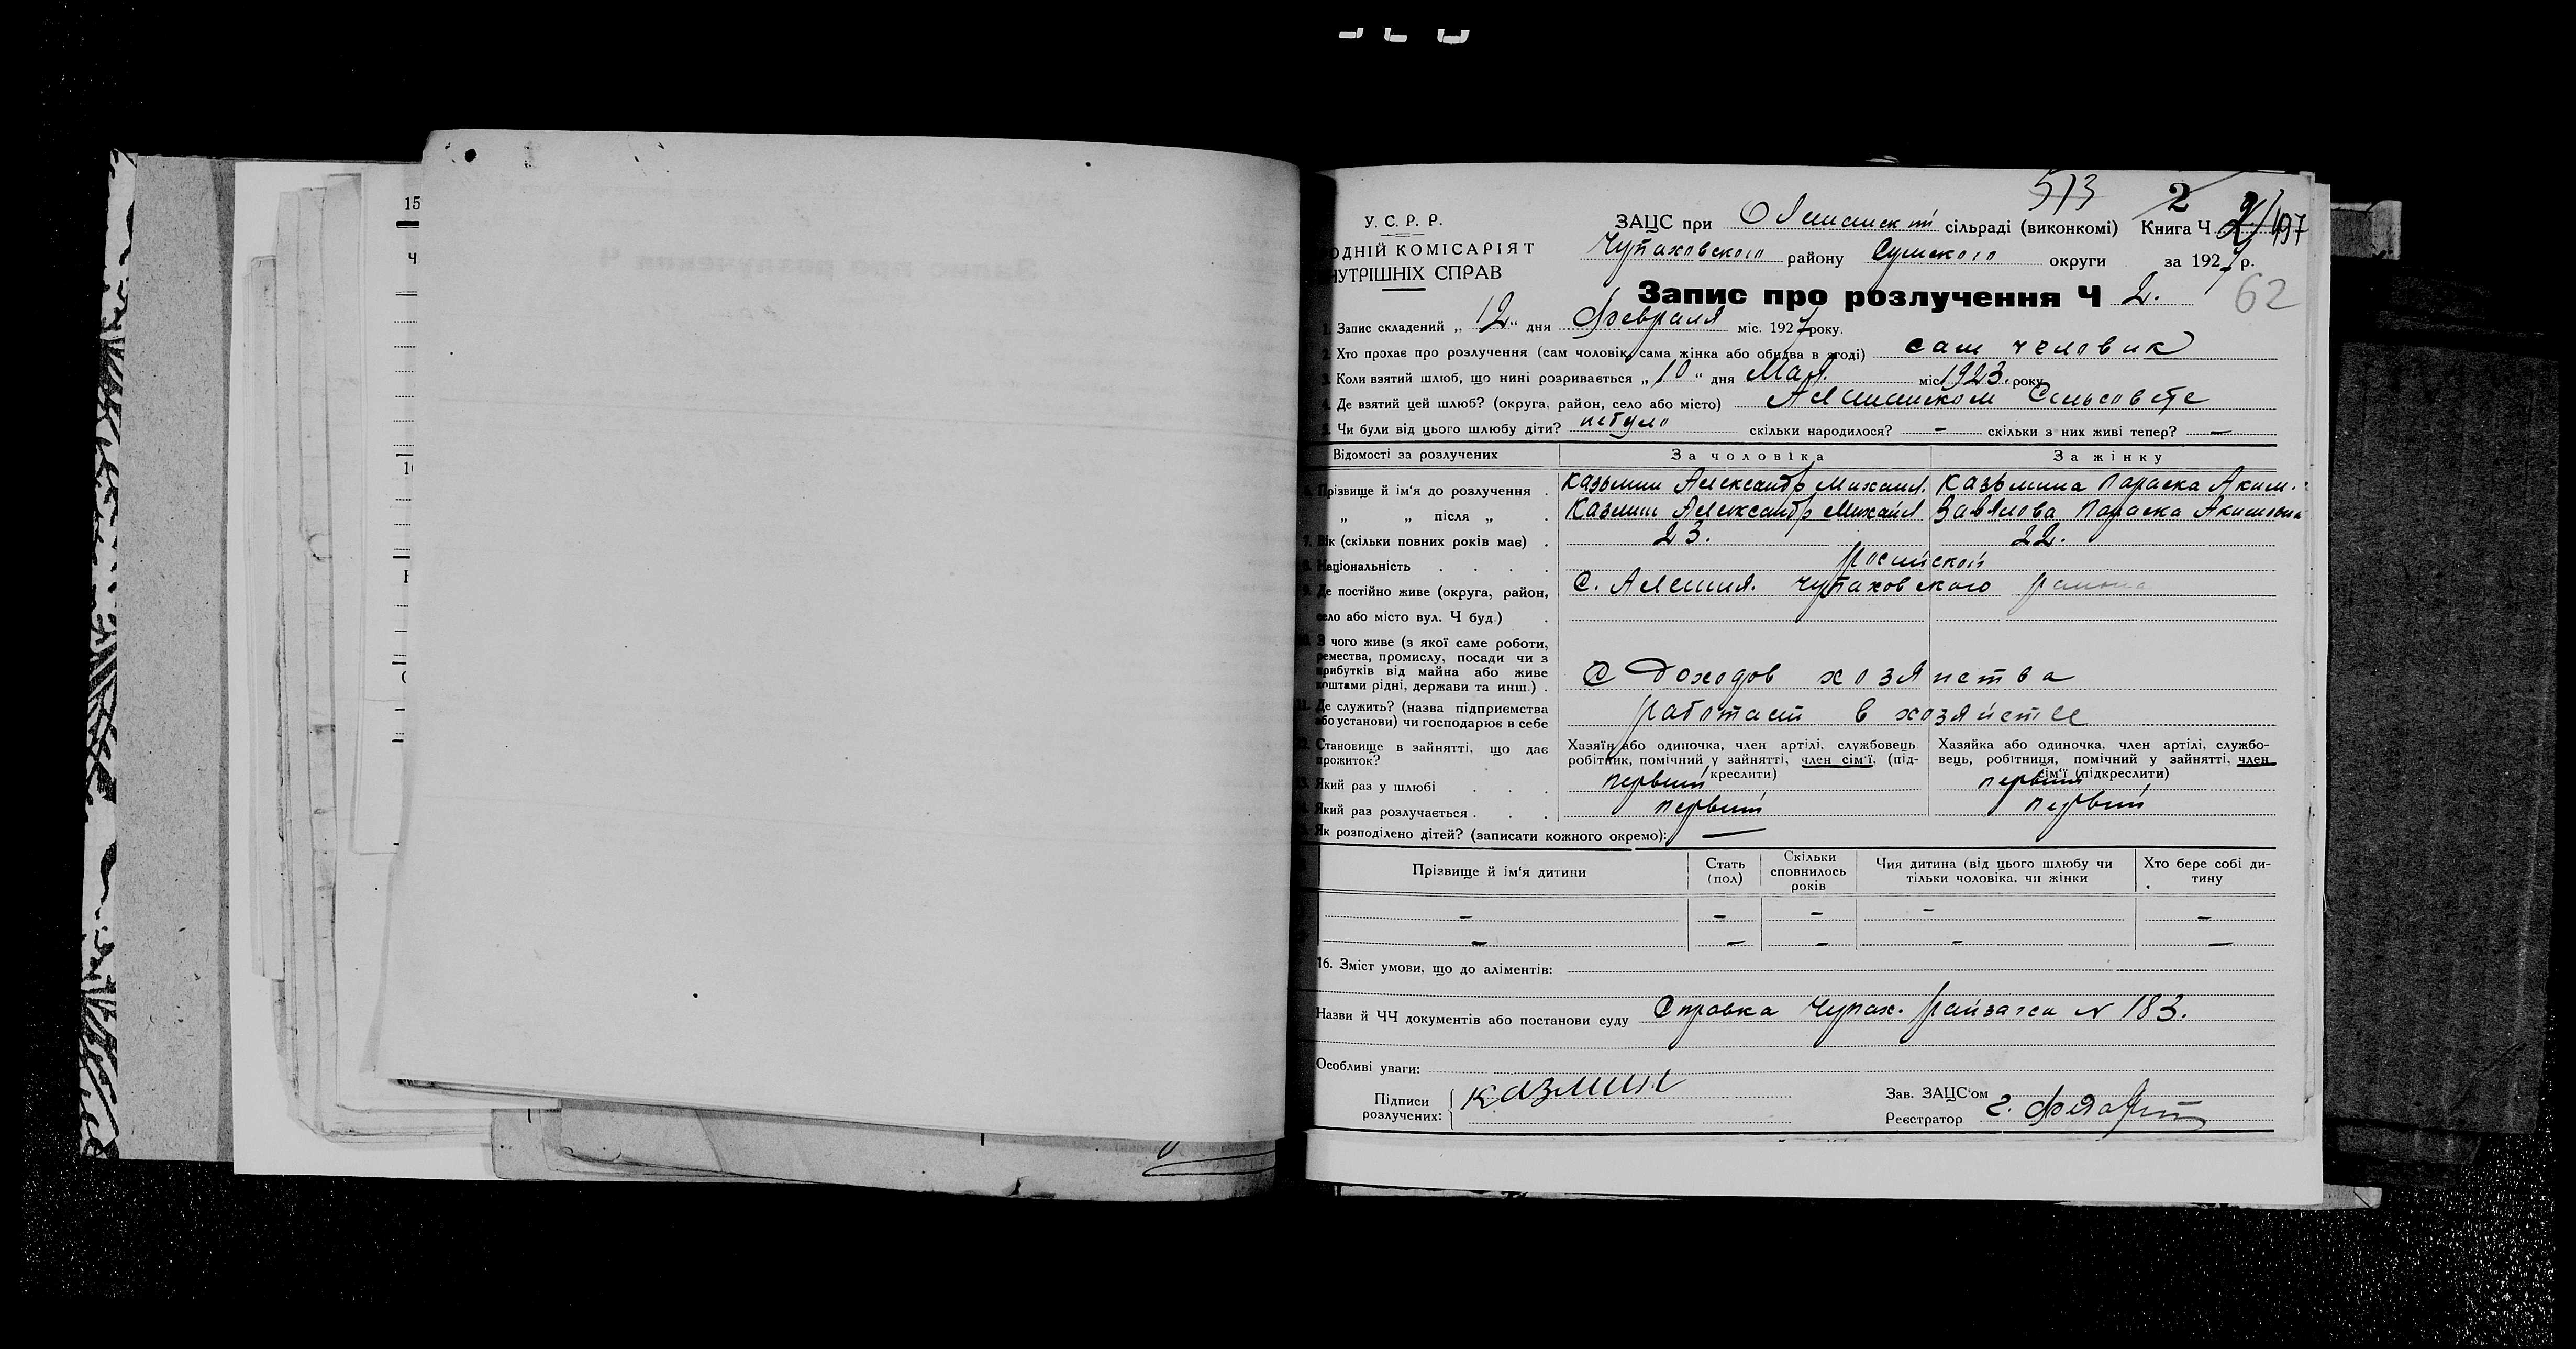 513 2
У. С. Р. Р. ЗАЦС при Олешанскій сільраді (виконкомі) Книга Ч 2/197
ОДНІЙ КОМІСАРІЯТ Чупаховского району Сумского округи за 1927 р.
НУТРІШНІХ СПРАВ
Запис про розлучення Ч 2. 62
1. Запис складений „12“ дня Февраля міс. 1927 року.
2. Хто прохає про розлучення (сам чоловік, сама жінка або обидва в згоді) сам человик
3. Коли взятий шлюб, що нині розривається „10“ дня Мая. міс 1923. року
4. Де взятий цей шлюб? (округа, район, село або місто) Алешанском Сельсовете
5. Чи були від цього шлюбу діти? небуло скільки народилося? — скільки з них живі тепер? —
Відомості за розлучених За чоловіка За жінку
Прізвище й ім'я до розлучення . Казьмин Александр Михаил. Казьмина Параска Аким.
„ „ після „ . Казмин Александр Михаил Завялова Параска Акимовна
7. Вік (скільки повних років має) . 23. 22.
8. Національність . . . . росийской
9. Де постійно живе (округа, район, С. Алешня. Чупаховского района
село або місто вул. Ч буд.) .
10. З чого живе (з якої саме роботи,
ремества, промислу, посади чи з
прибутків від майна або живе
коштами рідні, держави та инш.) . С Доходов хозяйства
11. Де служить? (назва підприємства
або установи) чи господарює в себе работает в хозяйстве
12. Становище в зайнятті, що дає прожиток? Хазяїн або одиночка, член артілі, службовець, робітник, помічний у зайнятті, член сім'ї, (підкреслити) Хазяйка або одиночка, член артілі, службовець, робітниця, помічний у зайнятті, член сім'ї (підкреслити)
13. Який раз у шлюбі . . . первый первый
Який раз розлучається . . . первый первый
Як розподілено дітей? (записати кожного окремо): —
Прізвище й ім'я дитини Стать (пол) Скільки сповнилось років Чия дитина (від цього шлюбу чи тільки чоловіка, чи жінки Хто бере собі дитину
— — — — —
— — — — —
16. Зміст умови, що до аліментів:
Назви й ЧЧ документів або постанови суду Справка Чупах. райзагса N 183.
Особливі уваги:
Підписи розлучених: Казмин
Зав. ЗАЦС'ом
Реєстратор